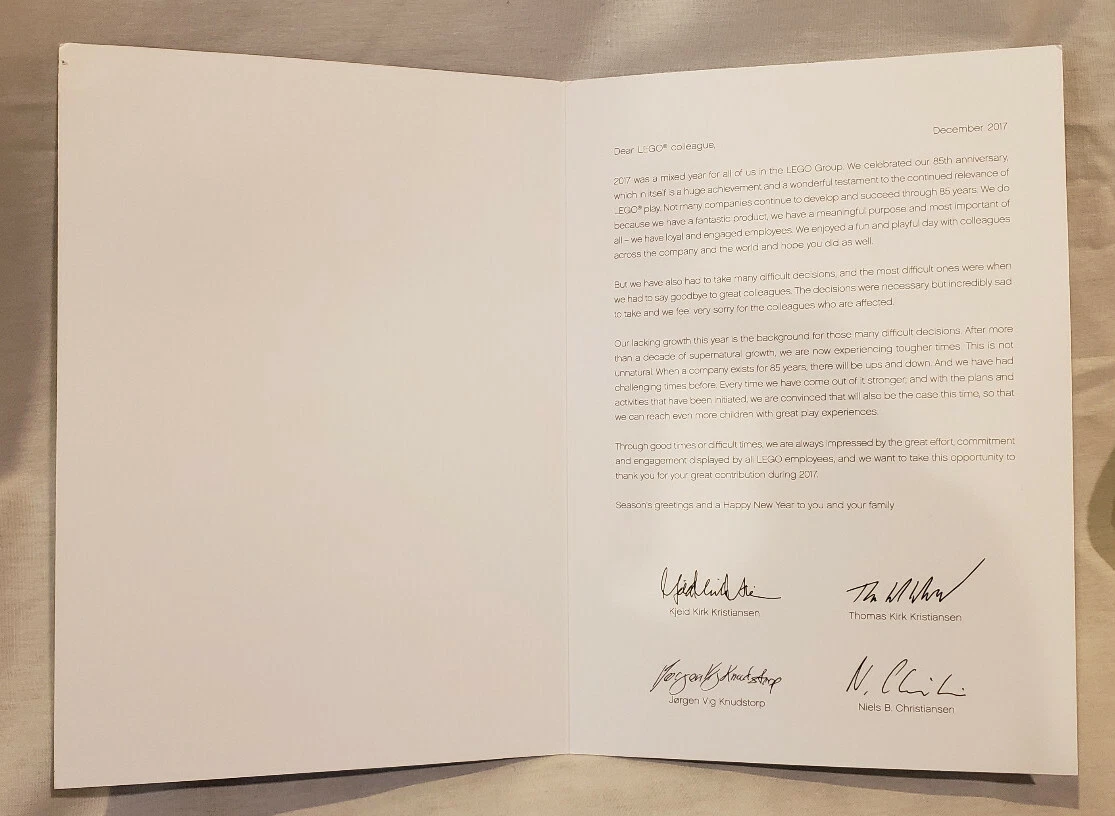 December 2017
Dear LEGO® colleague,
2017 was a mixed year for all of us in the LEGO Group. We celebrated our 85th anniversary,
which in itself is a huge achievement and a wonderful testament to the continued relevance of
LEGO® play. Not many companies continue to develop and succeed through 85 years. We do
because we have a fantastic product, we have a meaningful purpose and most important of
all – we have loyal and engaged employees. We enjoyed a fun and playful day with colleagues
across the company and the world and hope you did as well.
But we have also had to take many difficult decisions, and the most difficult ones were when
we had to say goodbye to great colleagues. The decisions were necessary but incredibly sad
to take and we feel very sorry for the colleagues who are affected.
Our lacking growth this year is the background for those many difficult decisions. After more
than a decade of supernatural growth, we are now experiencing tougher times. This is not
unnatural. When a company exists for 85 years, there will be ups and down. And we have had
challenging times before. Every time we have come out of it stronger, and with the plans and
activities that have been initiated, we are convinced that will also be the case this time, so that
we can reach even more children with great play experiences.
Through good times or difficult times, we are always impressed by the great effort, commitment
and engagement displayed by all LEGO employees, and we want to take this opportunity to
thank you for your great contribution during 2017.
Season's greetings and a Happy New Year to you and your family
Kjeld Kirk Kristiansen
Thomas Kirk Kristiansen
Jørgen Vig Knudstorp
Jørgen Vig Knudstorp
Niels B. Christiansen